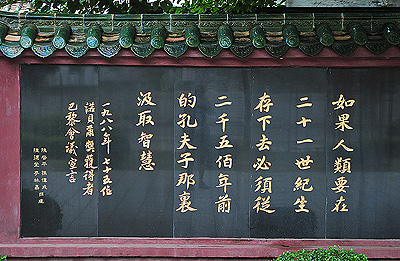 如果人類要在
二十一世紀生
存下去必須從
二千五佰年前
的孔夫子那裏
汲取智慧
一九八八年七十五位
諾貝爾獎獲得者
巴黎會議宣言